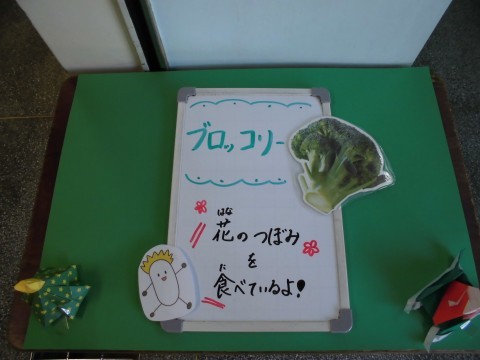 ブロッコリー
花のつぼみ
はな
を
食べているよ！
た